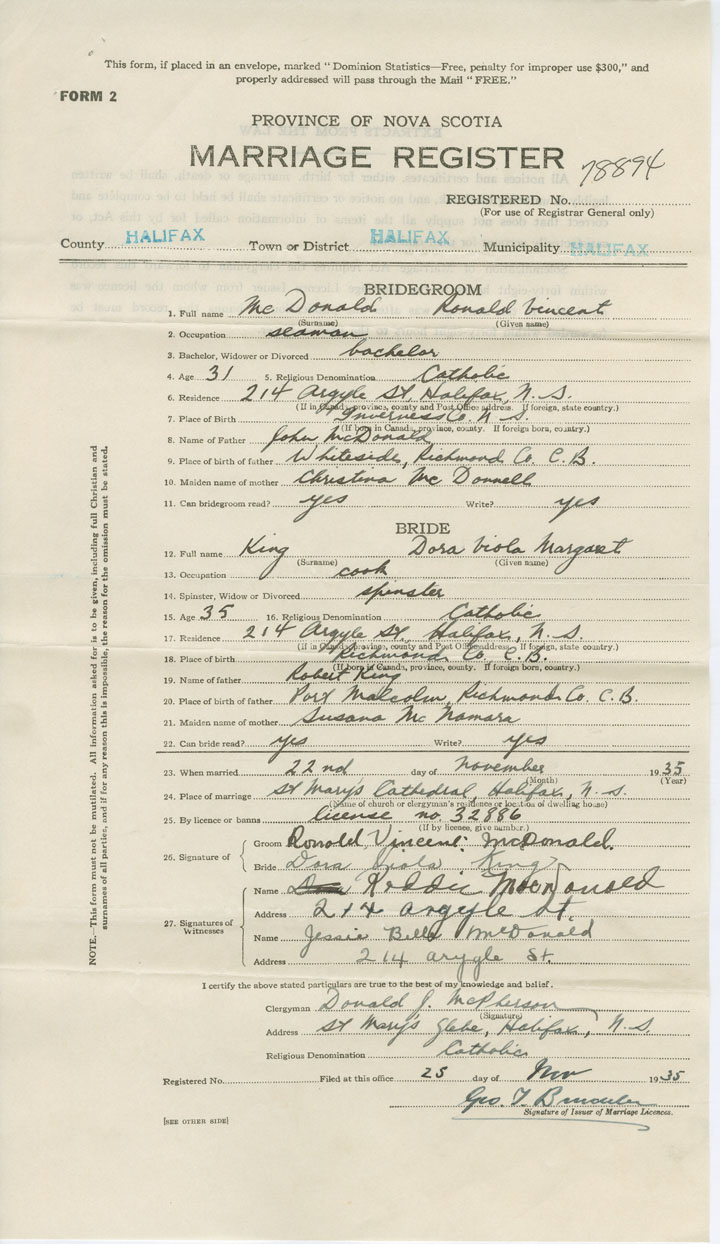 This form, if placed in an envelope, marked "Dominion Statistics—Free, penalty for improper use $300," and
properly addressed will pass through the Mail "FREE."
FORM 2
PROVINCE OF NOVA SCOTIA
MARRIAGE REGISTER
78894
REGISTERED No.
(For use of Registrar General only)
County HALIFAX Town or District HALIFAX Municipality HALIFAX
BRIDEGROOM
1. Full name McDonald Ronald Vincent
(Surname) (Given name)
2. Occupation seaman
3. Bachelor, Widower or Divorced bachelor
4. Age 31 5. Religious Denomination Catholic
6. Residence 214 Argyle St, Halifax, N.S.
(If in Canada, province, county and Post Office address. If foreign, state country.)
7. Place of Birth Inverness Co. N.S.
(If born in Canada, province, county. If foreign born, country.)
8. Name of Father John McDonald
9. Place of birth of father Whiteside, Richmond Co. C.B.
10. Maiden name of mother Christina McDonnell
11. Can bridegroom read? yes Write? yes
BRIDE
12. Full name King Dora Viola Margaret
(Surname) (Given name)
13. Occupation cook
14. Spinster, Widow or Divorced spinster
15. Age 35 16. Religious Denomination Catholic
17. Residence 214 Argyle St, Halifax, N.S.
(If in Canada, province, county and Post Office address. If foreign, state country.)
18. Place of birth Richmond Co. C.B.
(If born in Canada, province, county. If foreign born, country.)
19. Name of father Robert King
20. Place of birth of father Port Malcolm, Richmond Co. C.B.
21. Maiden name of mother Susana McNamara
22. Can bride read? yes Write? yes
23. When married 22nd day of November 1935
(Month) (Year)
24. Place of marriage St Mary's Cathedral, Halifax, N.S.
(Name of church or clergyman's residence or location of dwelling house)
25. By licence or banns license no. 32886
(If by licence, give number.)
26. Signature of
Groom Ronald Vincent McDonald.
Bride Dora Viola King
27. Signatures of Witnesses
Name
Address 214 Argyle St.
Name Jessie Bell McDonald
Address 214 arygle St.
I certify the above stated particulars are true to the best of my knowledge and belief.
Clergyman Donald J. McPherson
(Signature)
Address St Mary's Glebe, Halifax, N.S.
Religious Denomination Catholic
Registered No. Filed at this office 25 day of Nov 1935
Geo. T.
Signature of Issuer of Marriage Licences.
[SEE OTHER SIDE]
NOTE.—This form must not be mutilated. All information asked for is to be given, including full Christian and
surnames of all parties, and if for any reason this is impossible, the reason for the omission must be stated.